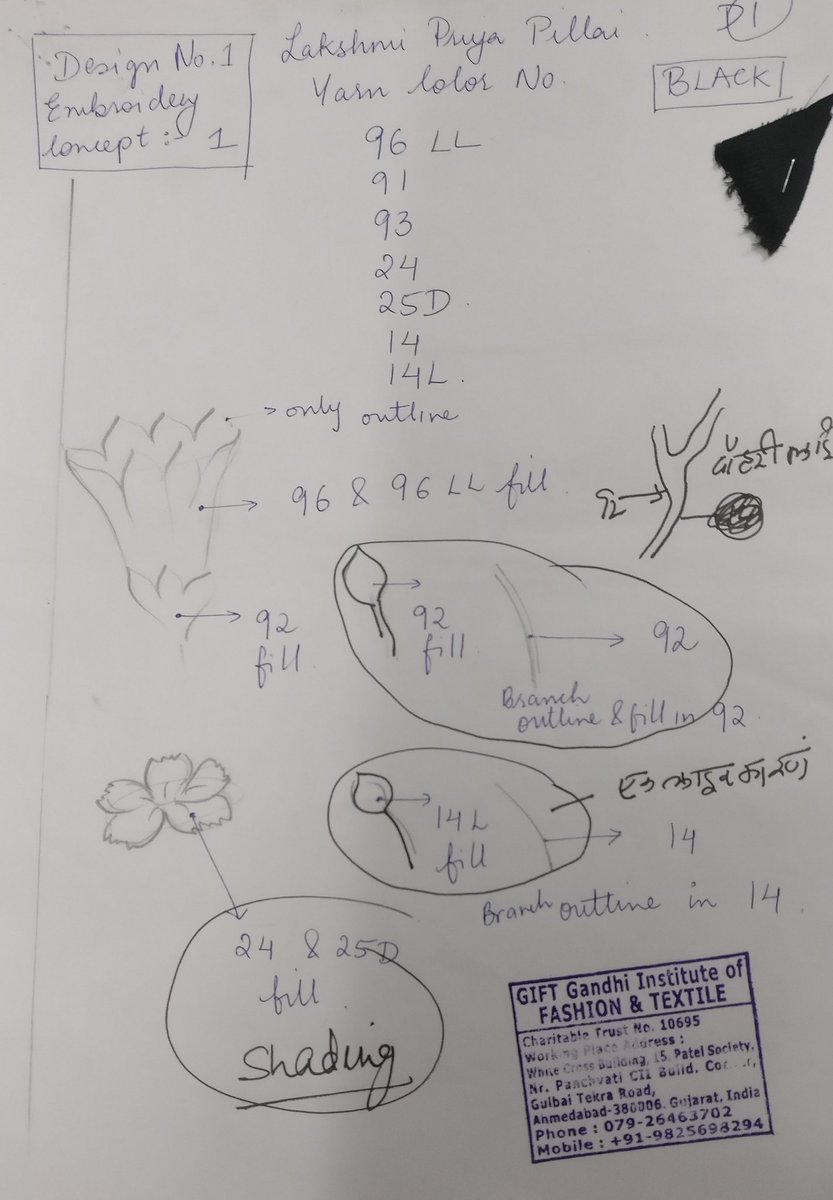 Design No. 1
Embroidery
Concept :- 1
Lakshmi Priya Pillai.
D1
Yarn Color No.
BLACK
96 LL
91
93
24
25D.
14
14L.
only outline
96 & 96 LL fill
92
92
fill.
92
fill.
92
Branch
outline & fill in 92.
14L
fill
14
Branch outline in 14.
24 & 25D
fill.
Shading
GIFT Gandhi Institute of
FASHION & TEXTILE
Charitable Trust No. 10695
Working Place Address :
White Cross Building, 15, Patel Society,
Nr. Panchvati CII Build.
Gulbai Tekra Road,
Ahmedabad-380006. Gujarat, India
Phone : 079-26463702
Mobile : +91-9825698294